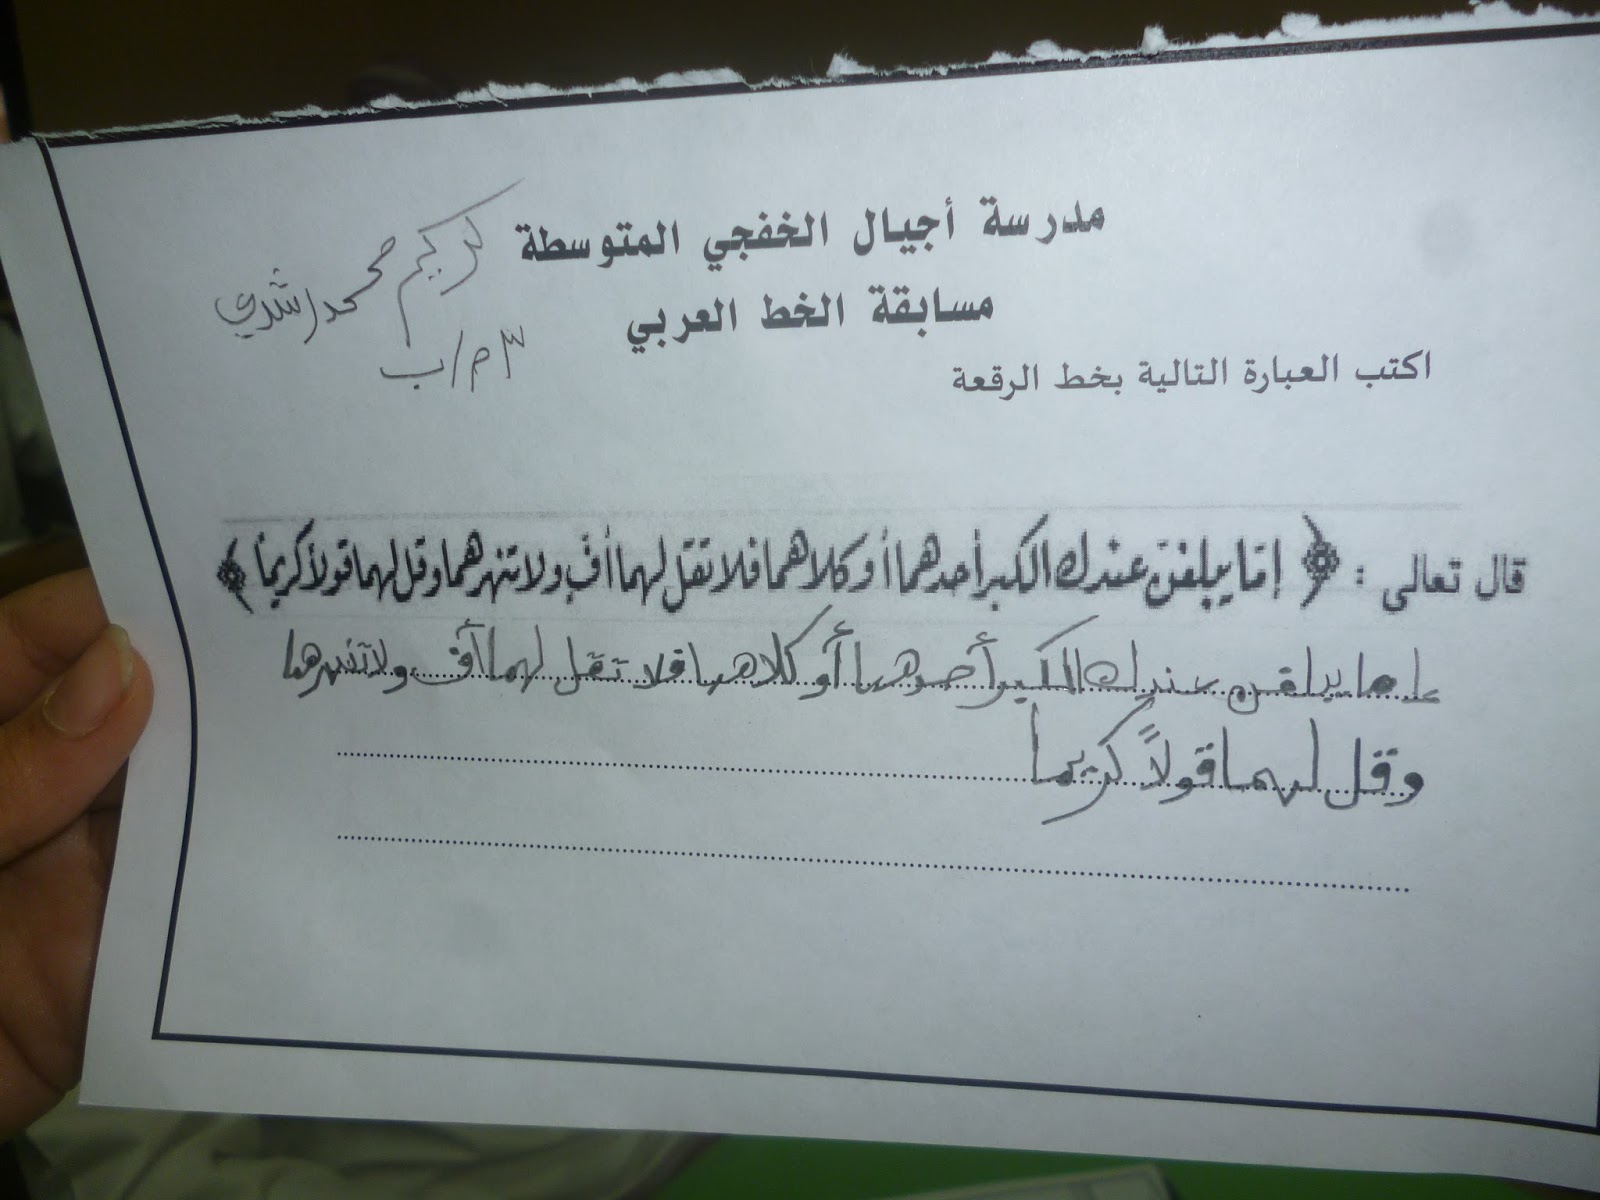 مدرسة أجيال الخفجي المتوسطة
كريم محمد رشدي
مسابقة الخط العربي
٣م/ب
اكتب العبارة التالية بخط الرقعة
قال تعالى : ﴿ إمّا يبلغنّ عندك الكبر أحدهما أو كلاهما فلا تقل لهما أفّ ولا تنهرهما وقل لهما قولاً كريمًا ﴾
إما يبلغن عندك الكبر أحدهما أو كلاهما فلا تقل لهما أف ولا تنهرهما
وقل لهما قولاً كريما